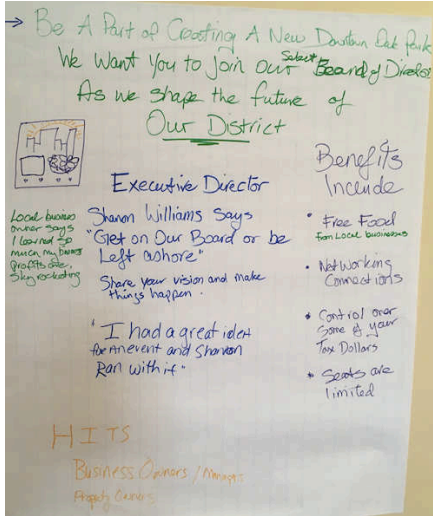 → Be A Part of Creating A New Downtown Oak Park
We Want You to Join Our Select Board of Directors
As we shape the future of
Our District
Executive Director
Shanon Williams Says
"Get on Our Board or be
Left ashore"
Share your vision and make
things happen.
"I had a great idea
for An event and Shannon
Ran with it"
Local business
owner says
I learned so
much my
profits are
Skyrocketing
Benefits
Include
• Free Food
from Local businesses
• Networking
Connections
• Control over
Some of your
Tax Dollars
• Seats are
limited
HITS
Business Owners / Managers
Property Owners